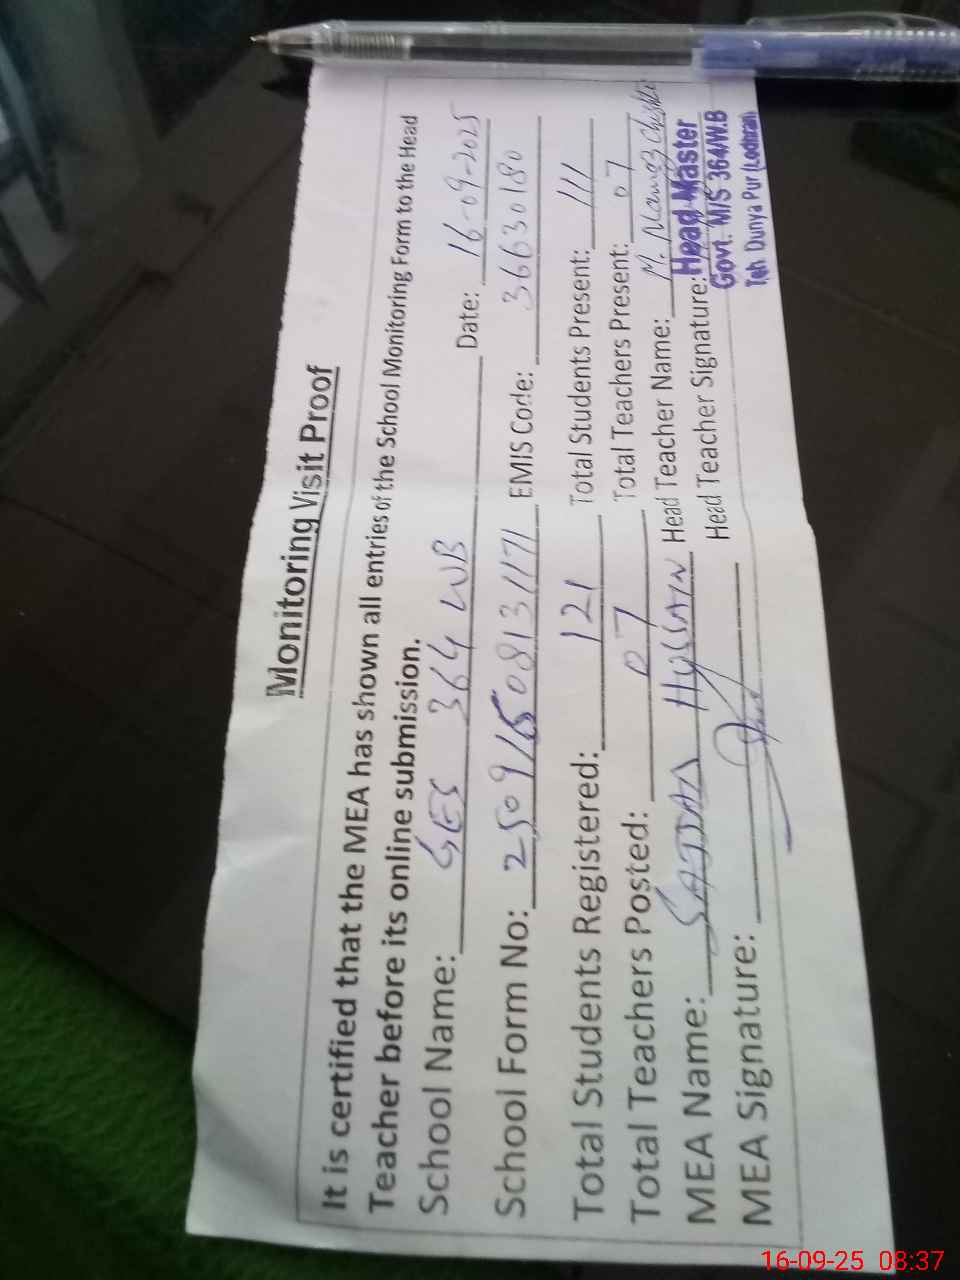 Monitoring Visit Proof
It is certified that the MEA has shown all entries of the School Monitoring Form to the Head
Teacher before its online submission.
School Name: GES 364 WB Date: 16-09-2025
School Form No: 25091508131171 EMIS Code: 36630180
Total Students Registered: 121 Total Students Present: 111
Total Teachers Posted: 07 Total Teachers Present: 07
MEA Name: SAJJAD HUSSAIN Head Teacher Name: M. Nawaz
MEA Signature: Head Teacher Signature:
Head Master
Govt. M/S 364/W.B
Teh Dunya Pur (Lodhran)
16-09-25 08:37